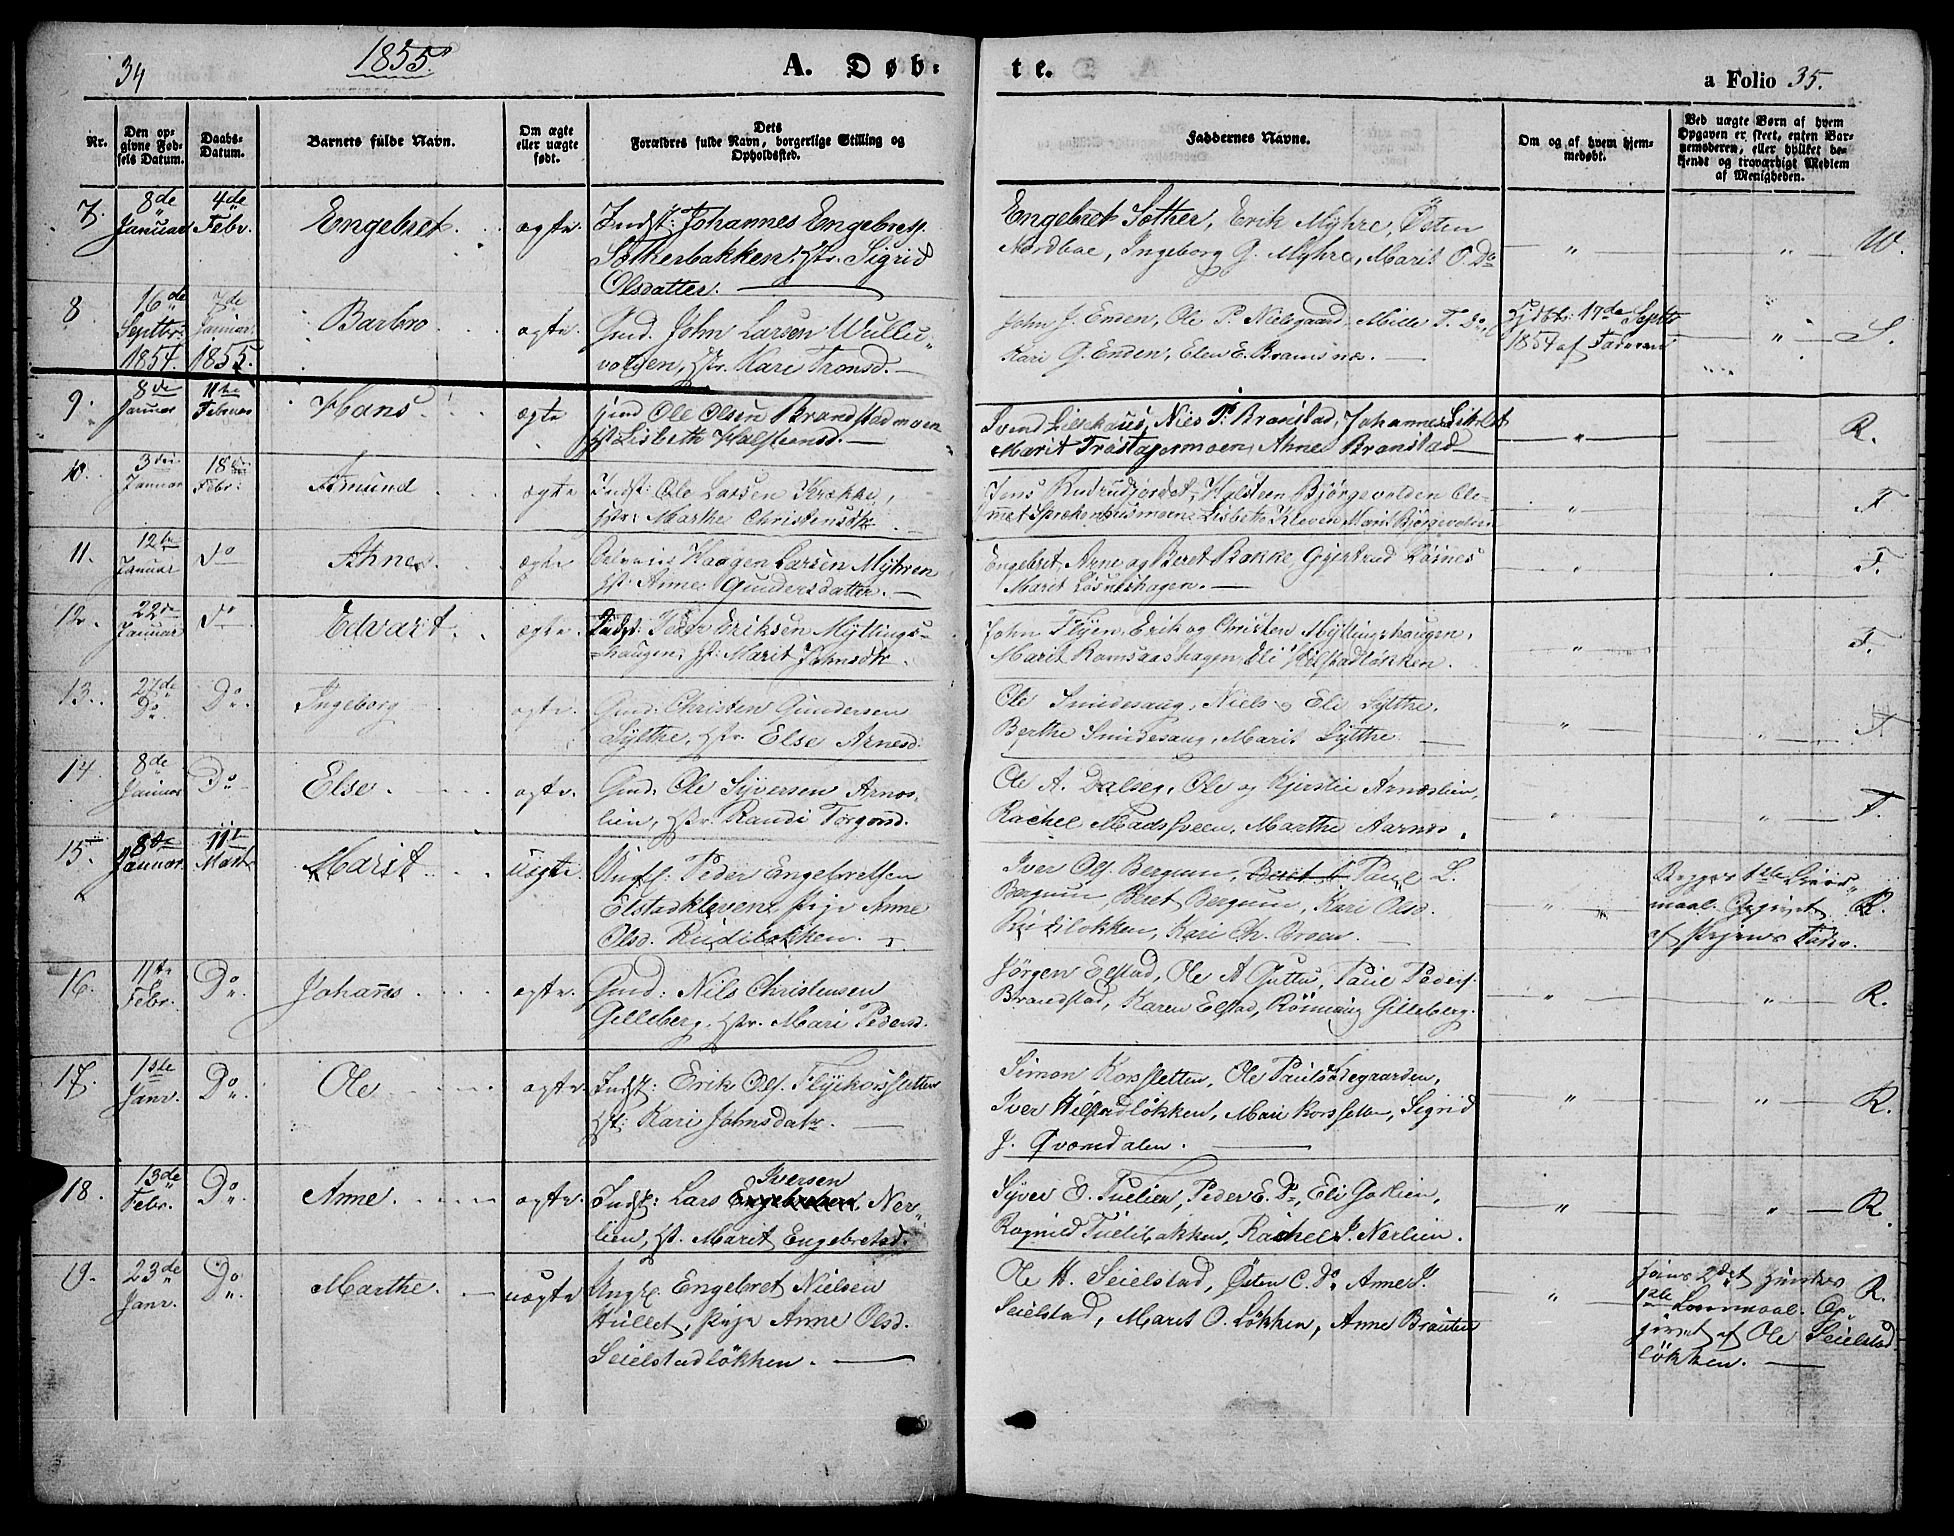 34
1855.
A. Døb-
te.
a Folio 35.
Nr.
Den op-
givne Fød-
sels Datum.
Daabs-
Datum.
Barnets fulde Navn.
Om ægte
eller uægte
født.
Dets
Forældres fulde Navn, borgerlige Stilling og
Opholdssted.
Faddernes Navne.
Om og af hvem hjem-
medøbt.
Ved uægte Børn af hvem
Opgaven er skeet, enten Bar-
nemoderen, eller hvilket be-
kjendt og troværdigt Medlem
af Menigheden.
7. 8de Januar 4de Febr. Engebret. ægte.
Indst: Johannes Engebrets.
Sotherbakken, Hstr. Sigrid
Olsdatter.
Engebret Sother, Erik Myhre, Østen
Nordboe, Ingeborg G. Myhre, Marit O. Do
" " W.
8 16de Septbr. 1854. 7de Januar. 1855. Barbro ægte.
Gmd. John Larsen Wullu-
volden, Hstr. Kari Tronsd.
John J. Emen, Ole P. Nielsgaard, Mille T. Do,
Kari G. Enden, Elen E. Bramsnæs.
17de Septbr
1854 af Faderen
" S.
9. 8de Januar 11te Februar Hans ægte
Gmd Ole Olsen Brandstadmoen
H. Lisbeth Halstensd.
Svend Lillehaus, Niels P. Branstad, Johannes
Marit Trøstagermoen, Ahne Branstad
" R.
10. 3die Januar 18de Febr. Amund ægte
Indst: Ole Larsen Krække,
Hstr: Marthe Christensdtr
Jens Rudrudjordet, Halsteen Bjørgevolden Cle-
met Sprækenhusmoen Lisbeth Kleven Marit Bjørgevolden
" F
11. 12te Januar do Ahne ægte
Haagen Larsen Myhren
H: Anne Gundersdatter.
Engebret, Arne og Beret Bakke, Gjertrud Løsnes
Marit Løsneshagen.
" F.
12. 22de Januar do Edvart. ægte.
Indst: Peder Eriksen Myttings-
haugen; H: Marit Johnsdtr.
John Flyen, Erik og Christen Myttingshaugen,
Marit Ramsaashagen, Eli Hilstadløkken.
" F.
13. 27de Do. Do. Ingeborg ægte.
Gmd. Christen Gundersen
Lythe, Hstr. Else Arnesd.
Ole Smidesang, Niels Eli Lythe.
Berthe Smidesang, Marit Lythe
" " F.
14. 8de Januar Do Else. ægte.
Gmd. Ole Syversen Arnes-
lien, Hstr. Randi Torgersd.
Ole A. Dalseg, Ole og Kjerstie Arneslien,
Rachel Madssveen, Marthe Aarnes.
" " F.
15. 8de Januar. 11te Marts Marit uægte.
Ungk: Peder Engebretsen
Elstadkleven, Pige Anne
Olsd. Rudiløkken.
Iver Ols. Bergum, Paul L.
Bergum, Beret Bergum, Kari Olsd.
Rudiløkken, Kari Ch. Broen.
Begges 1ste Leier-
maal. Opgivet
af Pigens Fader.
" R.
16. 11te Febr. Do Johannes ægte.
Gmd: Nils Christensen
Gilleberg. Hstr. Mari Pedersd.
Jørgen Elstad, Ole A Guttu, Paul Peders.
Brandstad, Karen Elstad, Rønnaug Gilleberg.
" " R.
17. 1ste Janr. Do Ole ægte.
Indst: Erik Ols. Flyekorssletten
H: Kari Johnsdatr.
Simon Korssletten, Ole Paulsødegaarden,
Iver Hilstadløkken, Mari Korssletten, Sigrid
J. Qvamdalen.
" " R.
18. 13de Febr. Do Anne. ægte.
Iversen
Indst: Lars Ner-
lien, H. Marit Engebretsd.
Syver E. Tuelien, Peder E. Do, Eli Goslien,
Ragnild Tueliløkken, Rachel J. Nerlien.
" " R.
19. 23de Janr. Do Marthe. uægte
Ungk. Engebret Nielsen
Hullet, Pige Anne Olsd.
Seielstadløkken.
Ole H. Seielstad, Østen C. Do, Anne J.
Seielstad, Marit O. Løkken, Anne Brauten
" R.
2det hendes
1ste Leiermaal. Op-
givet af Ole Seielstad
løkken.